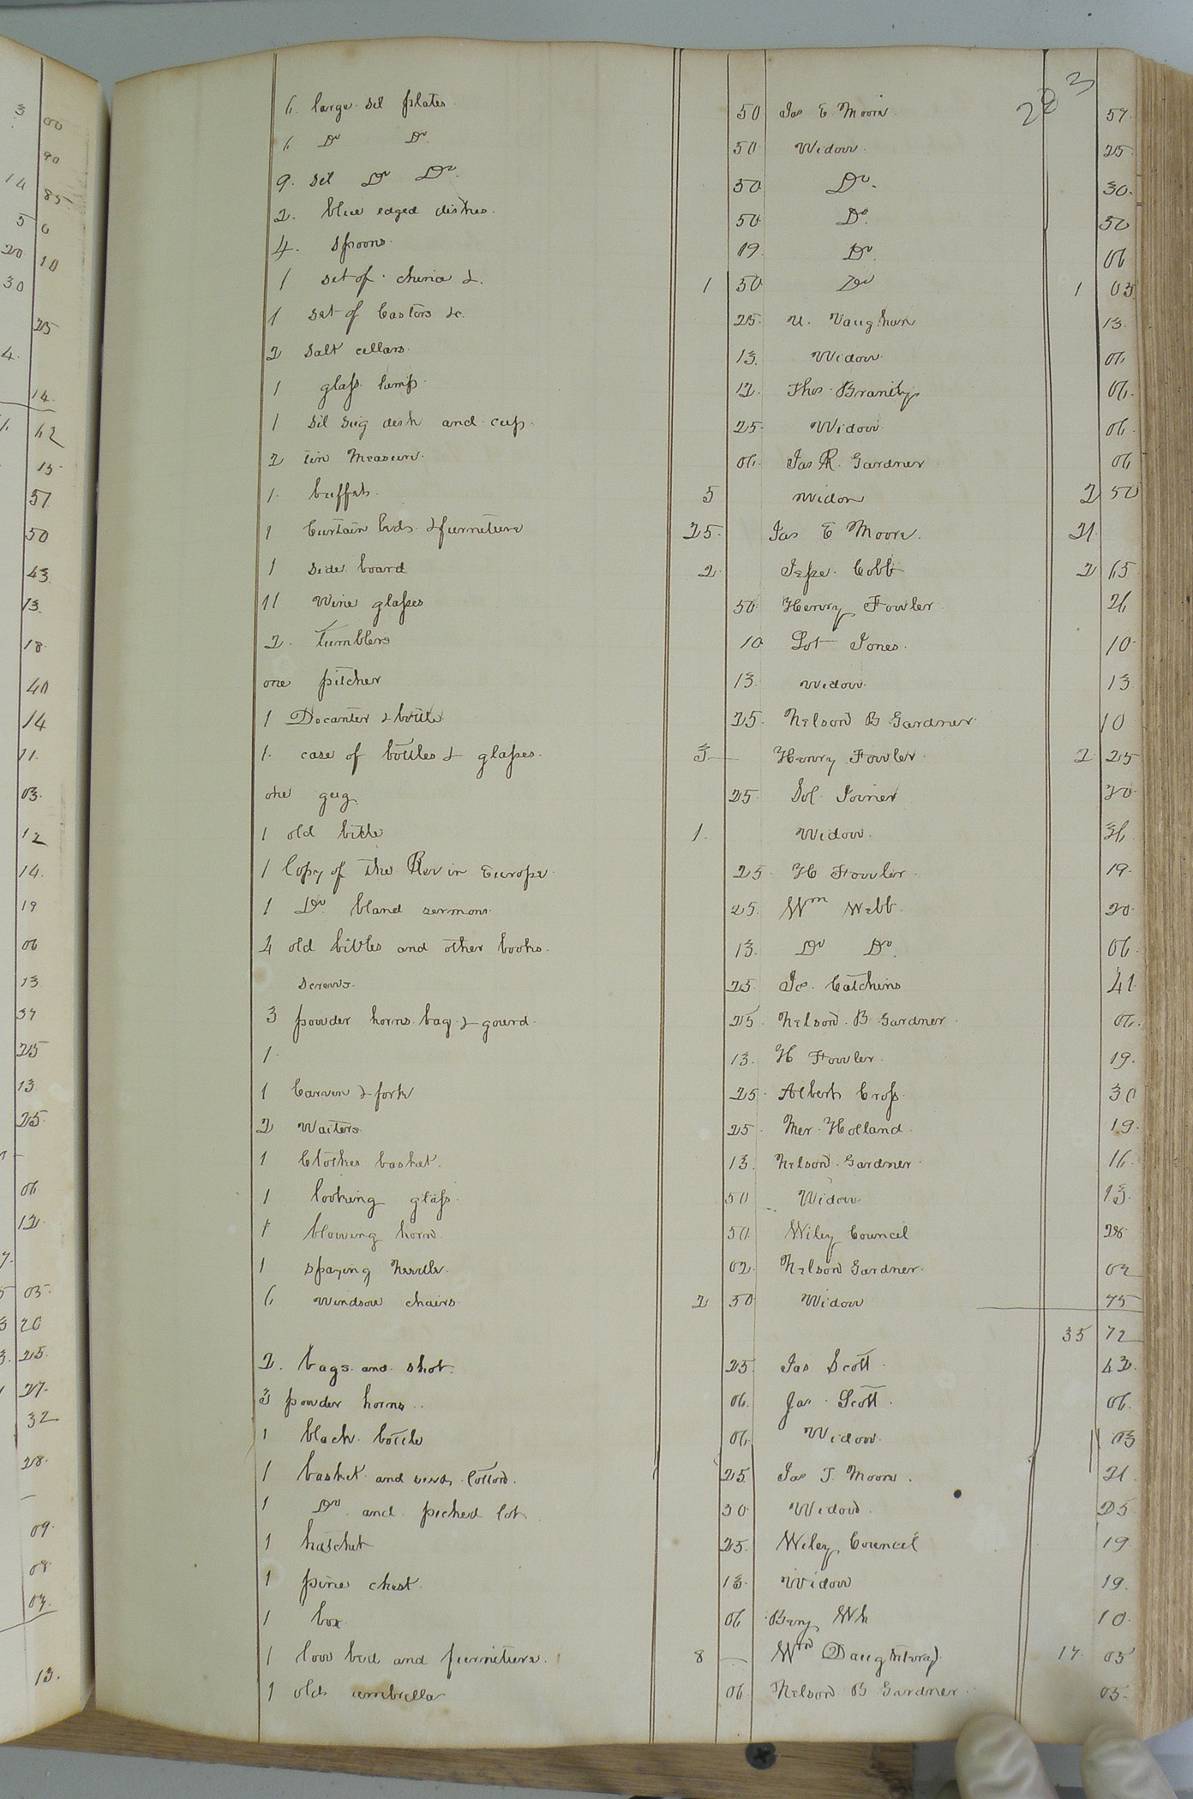 283
6 large Sil plates 50 Jas E Moore 57
6 Do Do 50 Widow 25
9 Sil Do Do 50 Do 30
2 blue edged dishes 50 Do 50
4 Spoons 09 Do 06
1 set of china & 1 50 Do 1 03
1 set of Castors &c 25 U. Vaughan 13
2 Salt cellars 13 Widow 06
1 glass lamp 12 Thos 06
1 Sil Sug dish and cup 25 Widow 06
2 tin Measure 06 Jas R. Gardner 06
1 buffet 5 Widow 2 50
1 Curtain bed & furniture 25 Jas E Moore 21
1 side board 2 Jesse Cobb 2 65
11 Wine glasses 50 Henry Fowler 26
2 tumblers 10 Lot Jones 10
one pitcher 13 Widow 13
1 Decanter & bottle 25 Nelson B Gardner 10
1 case of bottles & glasses 3 — Henry Fowler 2 25
one gug 25 Sol Joiner 20
1 old 1 Widow 36
1 Copy of the Rev in Europe 25 H Fowler 19
1 Do bland sermons 25 Wm Webb 20
4 old bibles and other books 13 Do Do 06
Screws 25 Catchins 41
3 powder horns bag & gourd 25 Nelson B Gardner 06
1 13 H Fowler 19
1 Carven & fork 25 Albert Cross 30
2 Waiters 25 Mer Holland 19
1 Clothes basket 13 Nelson Gardner 16
1 looking glass 50 Widow 13
1 blowing horn 50 Wiley Council 28
1 spaying needle 02 Nelson Gardner 02
6 Windsor chairs 2 50 Widow 75
35 72
2 bags and shot 25 Jas Scott 42
3 powder horns 06 Jas Scott 06
1 black bottle 06 Widow 03
1 basket and seed Cotton 25 Jas T. Moore 21
1 Do and picked Cot 30 Widow 25
1 hatchet 25 Wiley Council 19
1 pine chest 13 Widow 19
1 box 06 10
1 low bed and furniture 8 — Wm Daughtery 17 05
1 old umbrella 06 Nelson B Gardner 05